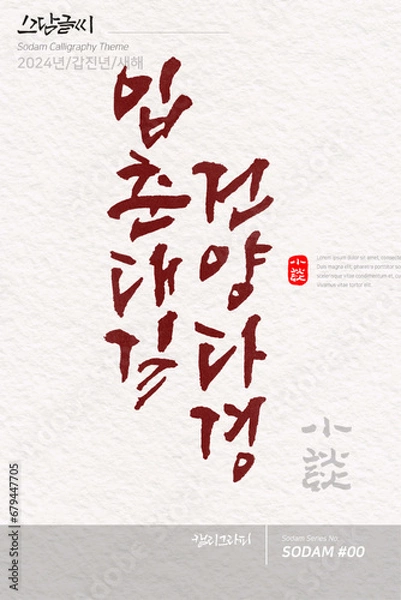 소담글씨
Sodam Calligraphy Theme
2024년/갑진년/새해
입춘대길
건양다경
小談
Lorem ipsum dolor sit amet, consectet
Duis magna elit,
scelerisque vitae enim vitae,
Vivamus vitae diam
小談
캘리그라피
Sodam Series No.
SODAM #00
Adobe Stock | #679447705